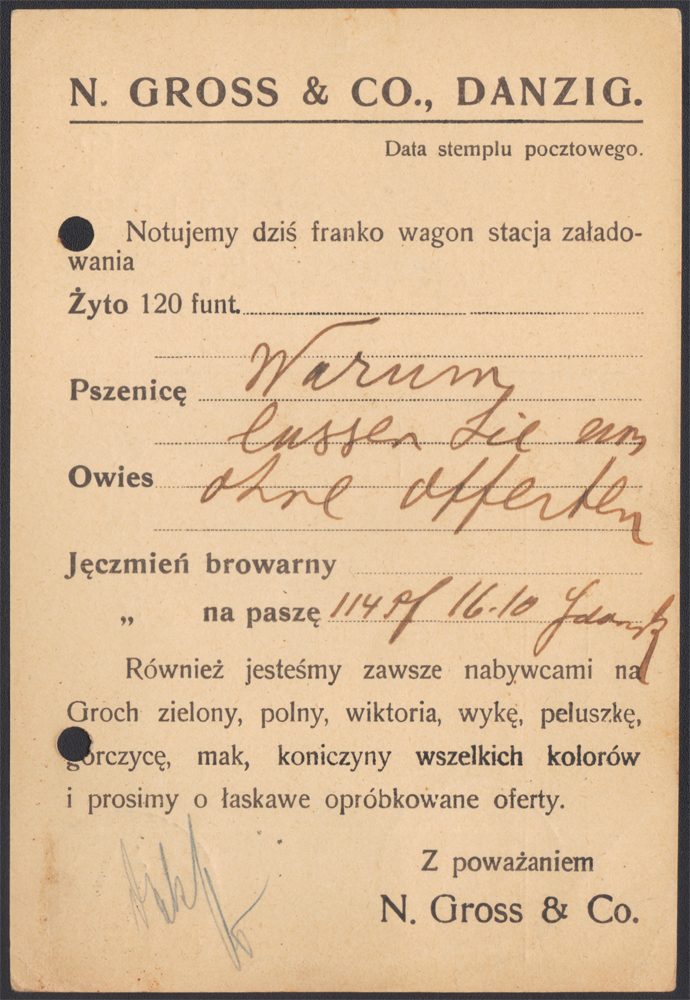 N. GROSS & CO., DANZIG.
Data stemplu pocztowego.
Notujemy dziś franko wagon stacja załado-
wania
Żyto 120 funt.
Warum
Pszenicę
lassen Sie uns
Owies
ohne Offerten
Jęczmień browarny
„ na paszę 114 Pf 16.10 Gdańsk
Również jesteśmy zawsze nabywcami na
Groch zielony, polny, wiktoria, wykę, peluszkę,
gorczycę, mak, koniczyny wszelkich kolorów
i prosimy o łaskawe opróbkowane oferty.
Z poważaniem
N. Gross & Co.